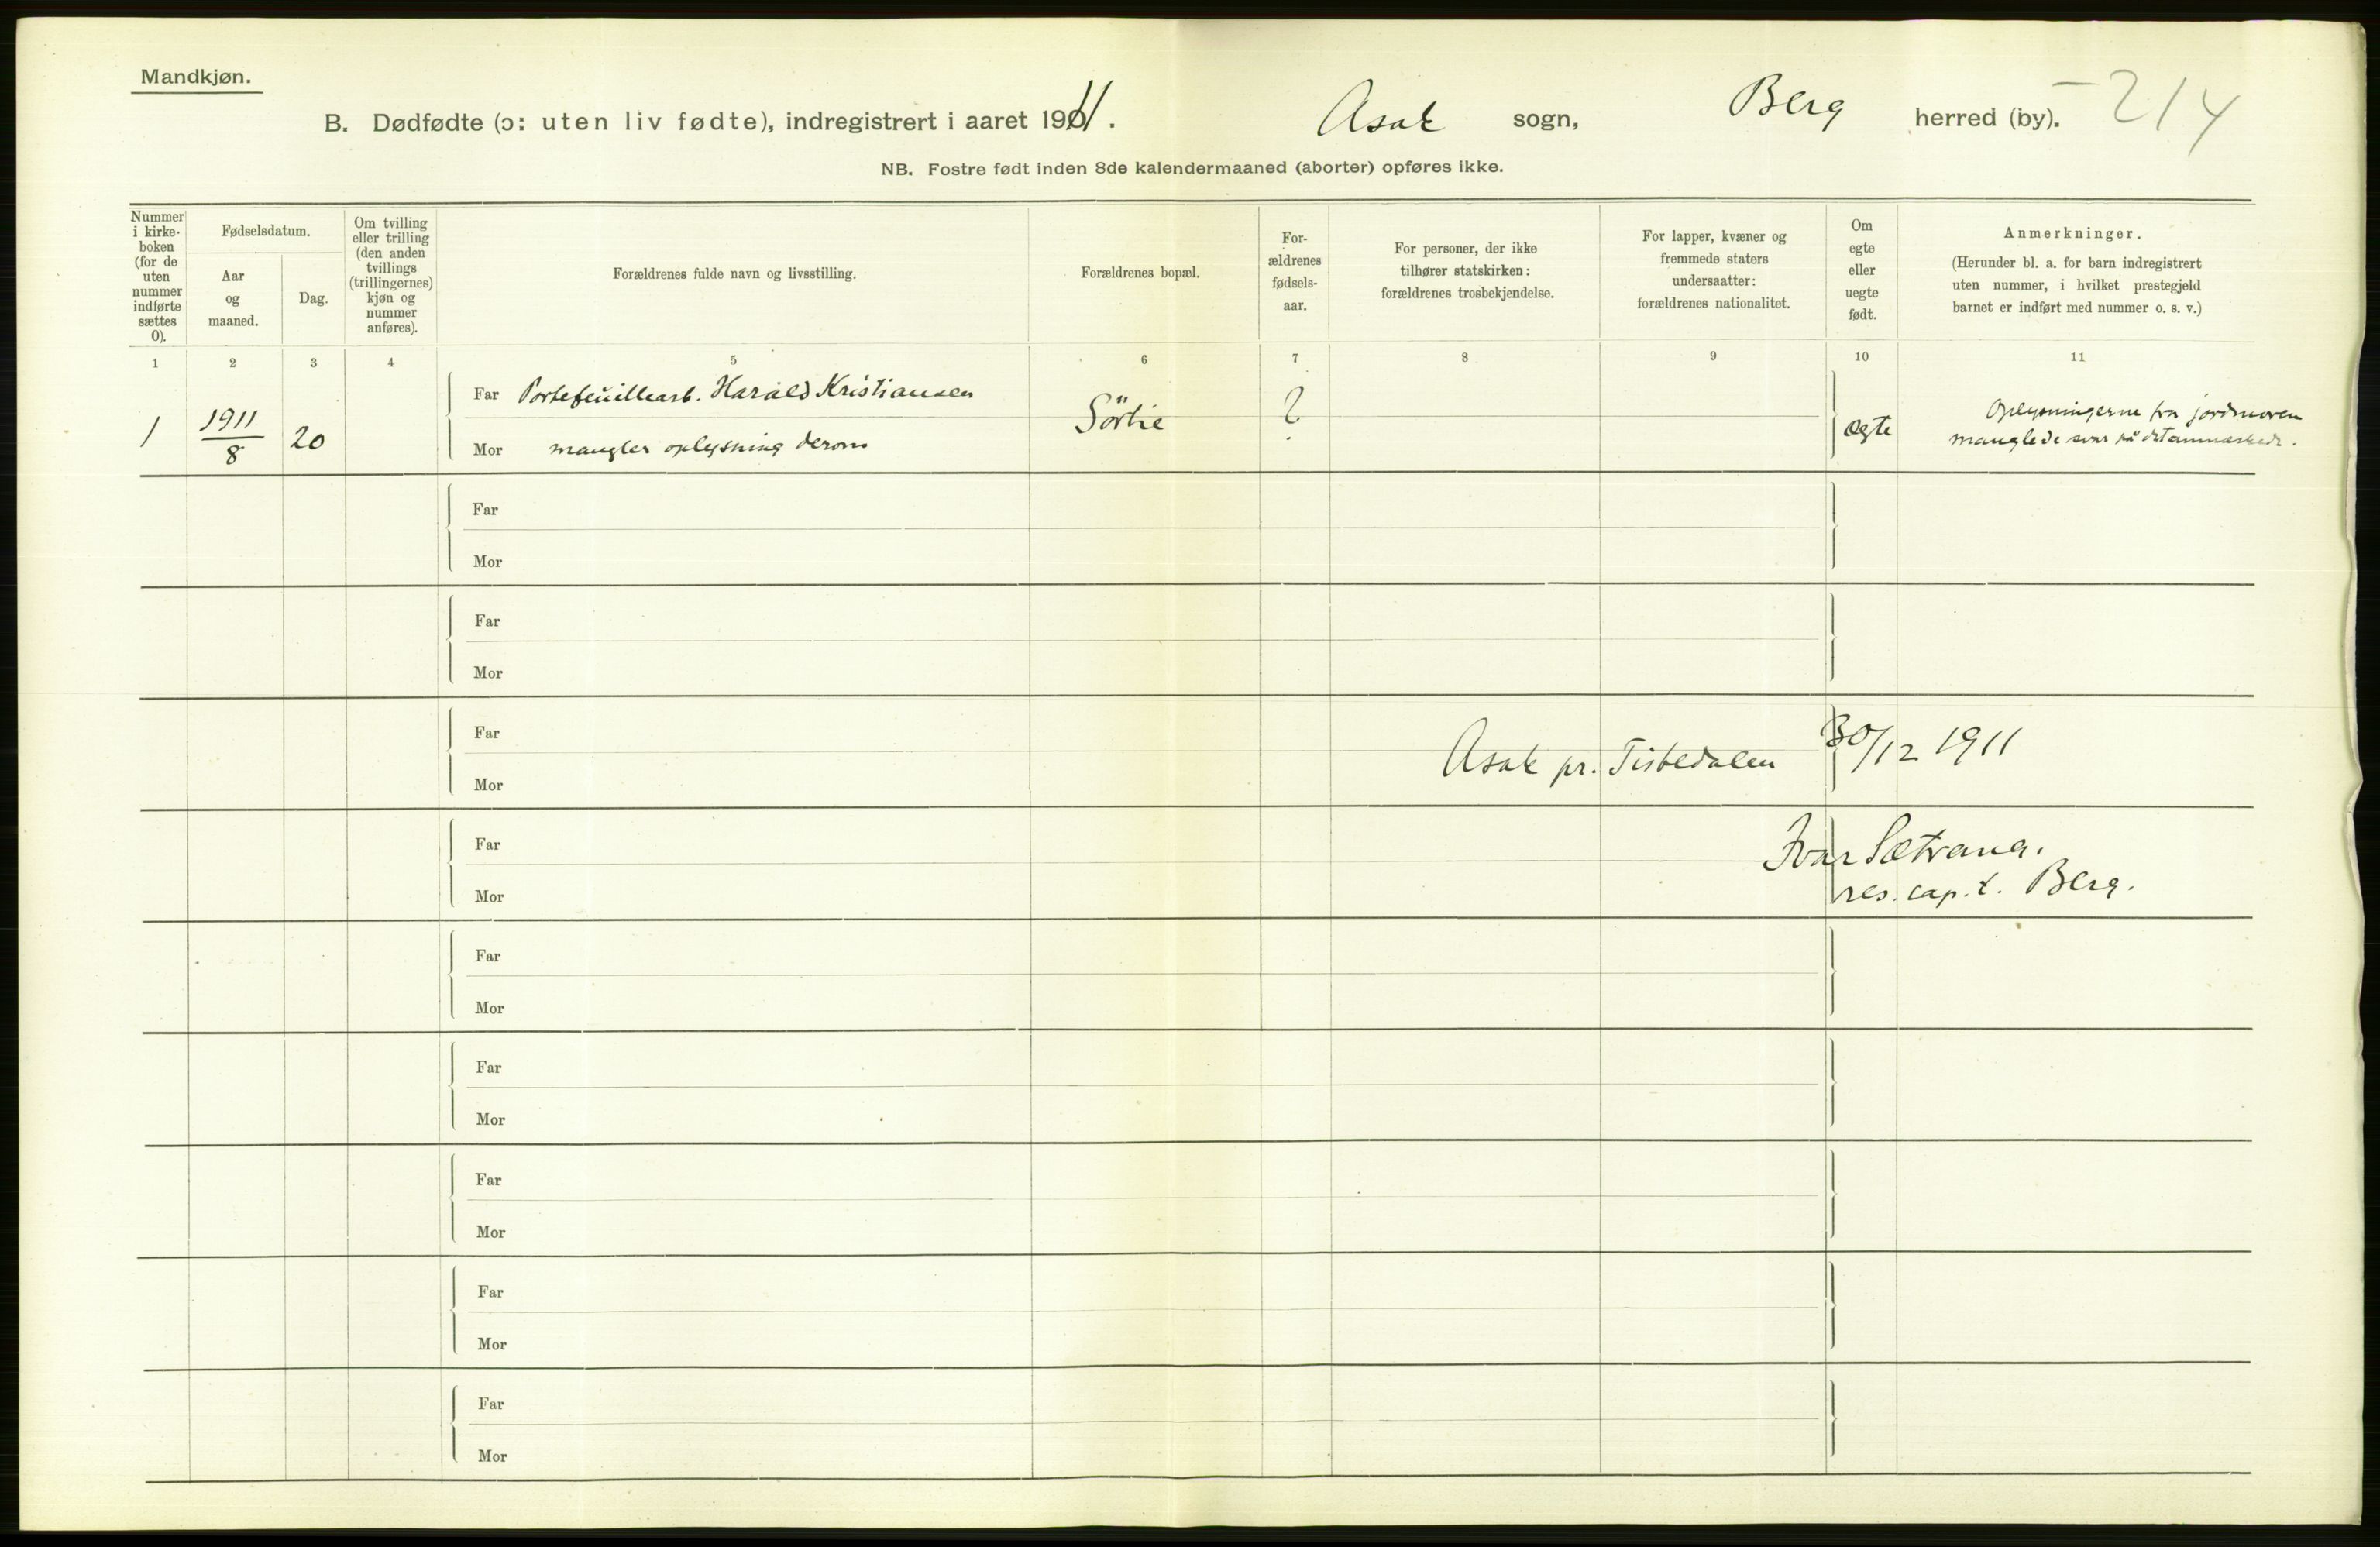 Mandkjøn.
B. Dødfødte (ɔ: uten liv fødte), indregistrert i aaret 1911. Asak sogn, Berg herred (by). 214
NB. Fostre født inden 8de kalendermaaned (aborter) opføres ikke.
Nummer i kirke-boken (for de uten nummer indførte sættes 0).
Fødselsdatum.
Aar og maaned.
Dag.
Om tvilling eller trilling (den anden tvillings (trillingernes) kjøn og nummer anføres).
Forældrenes fulde navn og livsstilling.
Forældrenes bopæl.
For-ældrenes fødsels-aar.
For personer, der ikke tilhører statskirken: forældrenes trosbekjendelse.
For lapper, kvæner og fremmede staters undersaatter: forældrenes nationalitet.
Om egte eller uegte født.
Anmerkninger.
(Herunder bl. a. for barn indregistrert uten nummer, i hvilket prestegjeld barnet er indført med nummer o. s. v.)
1 2 3 4 5 6 7 8 9 10 11
1 1911/8 20
Far Portefeuillearb. Harald Kristiansen
Mor mangler oplysning derom
Sörlie ? ægte
Oplysningerne fra jordmoren
manglede svar på
Far
Mor
Far
Mor
Far
Mor
Asak pr. Tistedalen 30/12 1911
Far
Mor
Ivar Sætrang.
res. cap. t. Berg.
Far
Mor
Far
Mor
Far
Mor
Far
Mor
Far
Mor